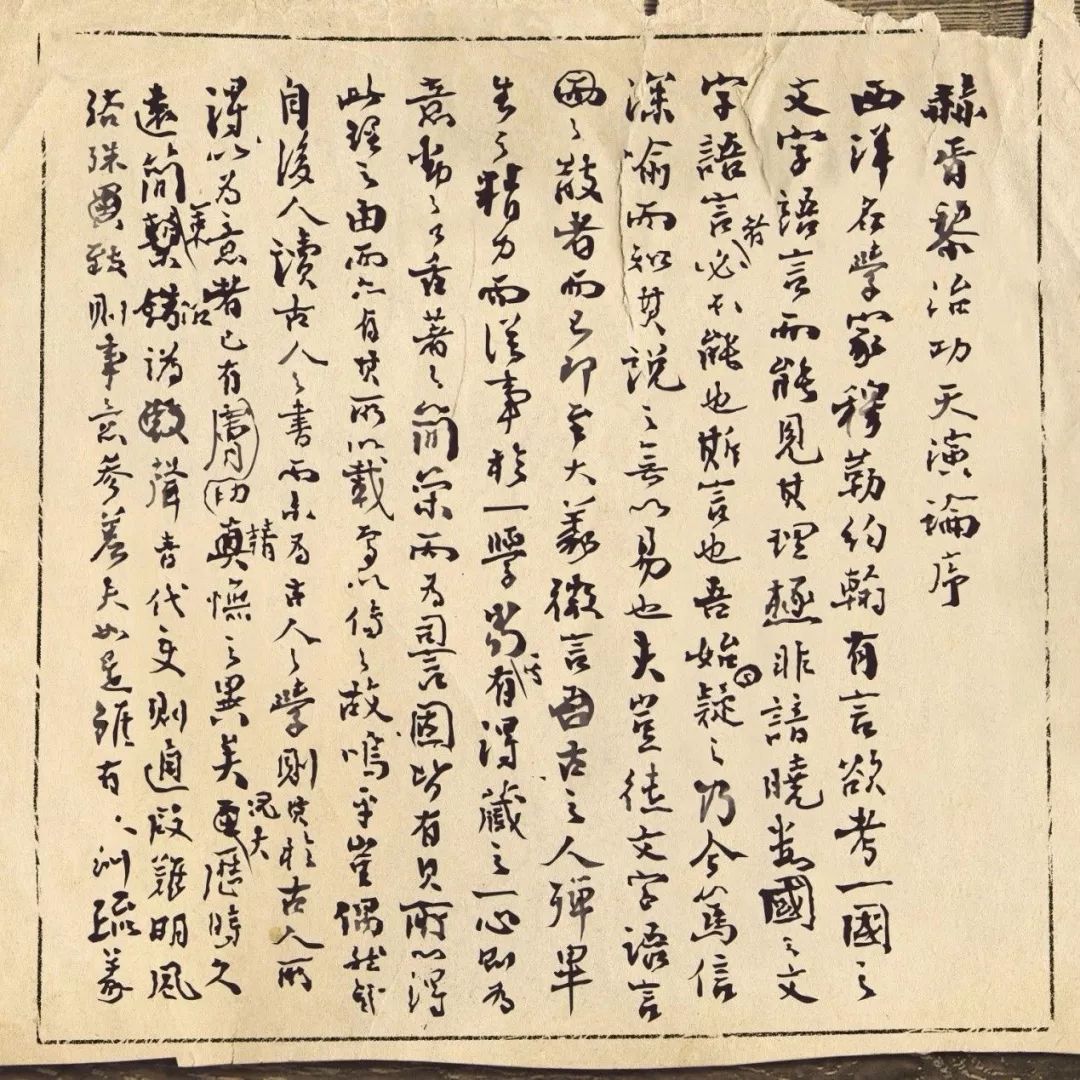 赫胥黎治功天演論序
西洋名學家穆勒約翰有言欲考一國之
文字語言而能見其理極非諳曉數國之文
字語言者必不能也斯言也吾始疑之乃今篤信
深喻而知其說之無以易也夫豈徒文字語言
之散者而已即至大義微言吾古之人殫畢
生之精力而從事於一學當其有得藏之一心則為
意動之口舌著之簡策而為詞固皆有其所以得
此理之由而亦有其所以載焉以傳之故嗚乎豈偶然哉
自後人讀古人之書而未為古人之學則其於古人所
得以為意者已有膚切精憮之異矣況夫歷時久
遠簡牘沿訛聲音代變則通叚難明風
俗殊致則事意參差夫如是雖有訓疏義